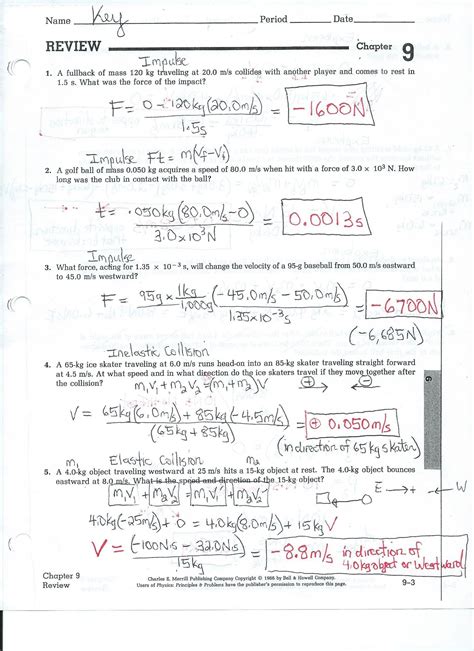 Name Key Period Date
REVIEW Chapter 9
Impulse
1. A fullback of mass 120 kg traveling at 20.0 m/s collides with another player and comes to rest in
1.5 s. What was the force of the impact?
F = 0 - 120kg(20.0m/s) / 1.5s = -1600N
Impulse Ft = m(Vf-Vi)
2. A golf ball of mass 0.050 kg acquires a speed of 80.0 m/s when hit with a force of 3.0 × 10³ N. How
long was the club in contact with the ball?
t = .050kg(80.0m/s-0) / 3.0x10³N = 0.0013s
Impulse
3. What force, acting for 1.35 × 10⁻³ s, will change the velocity of a 95-g baseball from 50.0 m/s eastward
to 45.0 m/s westward?
F = 95g x 1kg/1,000g (-45.0m/s - 50.0m/s) / 1.35x10⁻³s = -6700N
(-6,685N)
Inelastic Collision
4. A 65-kg ice skater traveling at 6.0 m/s runs head-on into an 85-kg skater traveling straight forward
at 4.5 m/s. At what speed and in what direction do the ice skaters travel if they move together after
the collision? m₁V₁ + m₂V₂ = (m₁+m₂)V + -
V = 65kg(6.0m/s) + 85kg(-4.5m/s) / (65kg + 85kg) = + 0.050m/s
(in direction of 65kg skater)
m₁ Elastic Collision m₂
5. A 4.0-kg object traveling westward at 25 m/s hits a 15-kg object at rest. The 4.0-kg object bounces
eastward at 8.0 m/s. What is the speed and direction of the 15-kg object?
m₁V₁ + m₂V₂ = m₁V₁' + m₂V₂' E → + ← W
4.0kg(-25m/s) + 0 = 4.0kg(8.0m/s) + 15kg V
V = (-100N·s - 32.0N·s) / 15kg = -8.8m/s in direction of
4.0kg object or Westward
6
Chapter 9
Review
Charles E. Merrill Publishing Company Copyright © 1986 by Bell & Howell Company.
Users of Physics: Principles & Problems have the publisher's permission to reproduce this page.
9-3